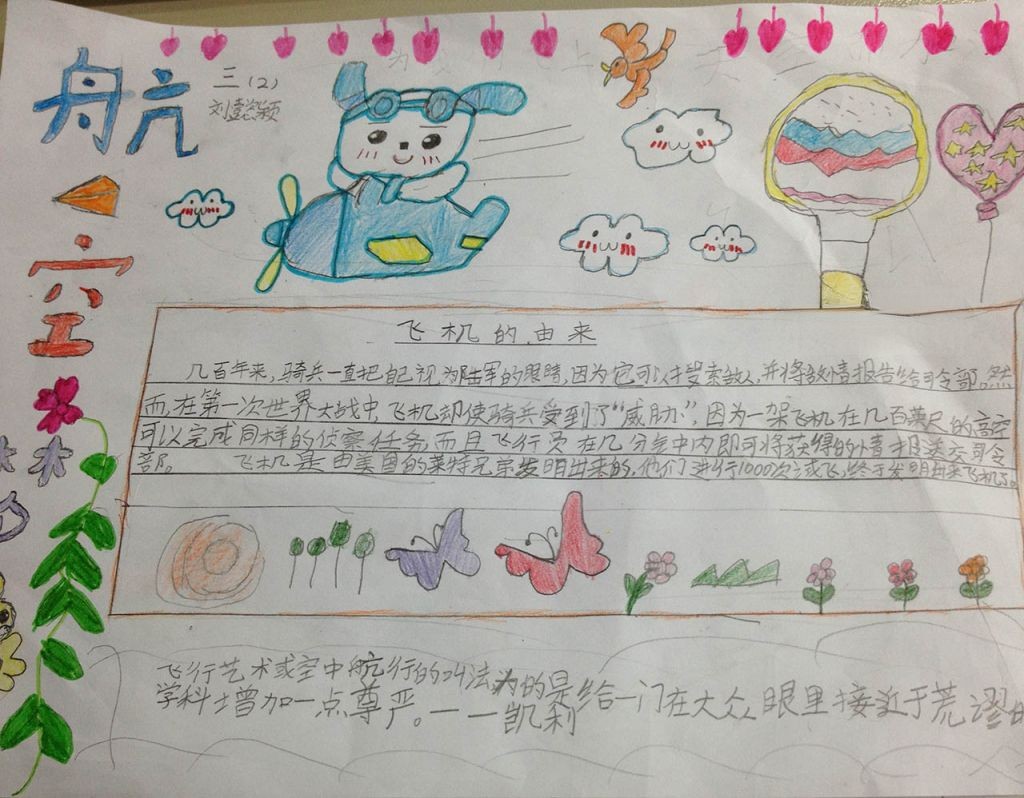 航
空
三(2)
刘懿颖
飞机的由来
几百年来,骑兵一直把自己视为陆军的眼睛,因为它可以搜索敌人,并将敌情报告给司令部。然
而,在第一次世界大战中,飞机却使骑兵受到了“威胁”,因为一架飞机在几百英尺的高空
可以完成同样的侦察任务,而且飞行员在几分钟内即可将获得的情报送交司令
部。 飞机是由美国的莱特兄弟发明出来的,他们进行1000次试飞,终于发明出来飞机了。
飞行艺术或空中航行的叫法为的是给一门在大众眼里接近于荒谬的
学科增加一点尊严。——凯利